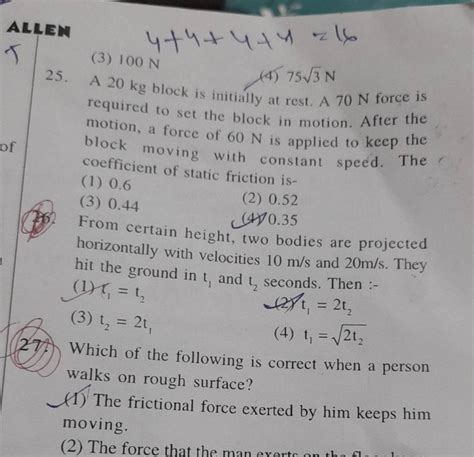 ALLEN
4+4+4+4=16
(3) 100 N
(4) 75√3 N
25. A 20 kg block is initially at rest. A 70 N force is
required to set the block in motion. After the
motion, a force of 60 N is applied to keep the
of
block moving with constant speed. The
coefficient of static friction is-
(1) 0.6
(2) 0.52
(3) 0.44
(4) 0.35
26. From certain height, two bodies are projected
horizontally with velocities 10 m/s and 20m/s. They
hit the ground in t₁ and t₂ seconds. Then :-
(1) t₁ = t₂
(2) t₁ = 2t₂
(3) t₂ = 2t₁
(4) t₁ = √2t₂
27. Which of the following is correct when a person
walks on rough surface?
(1) The frictional force exerted by him keeps him
moving.
(2) The force that the man exerts on the